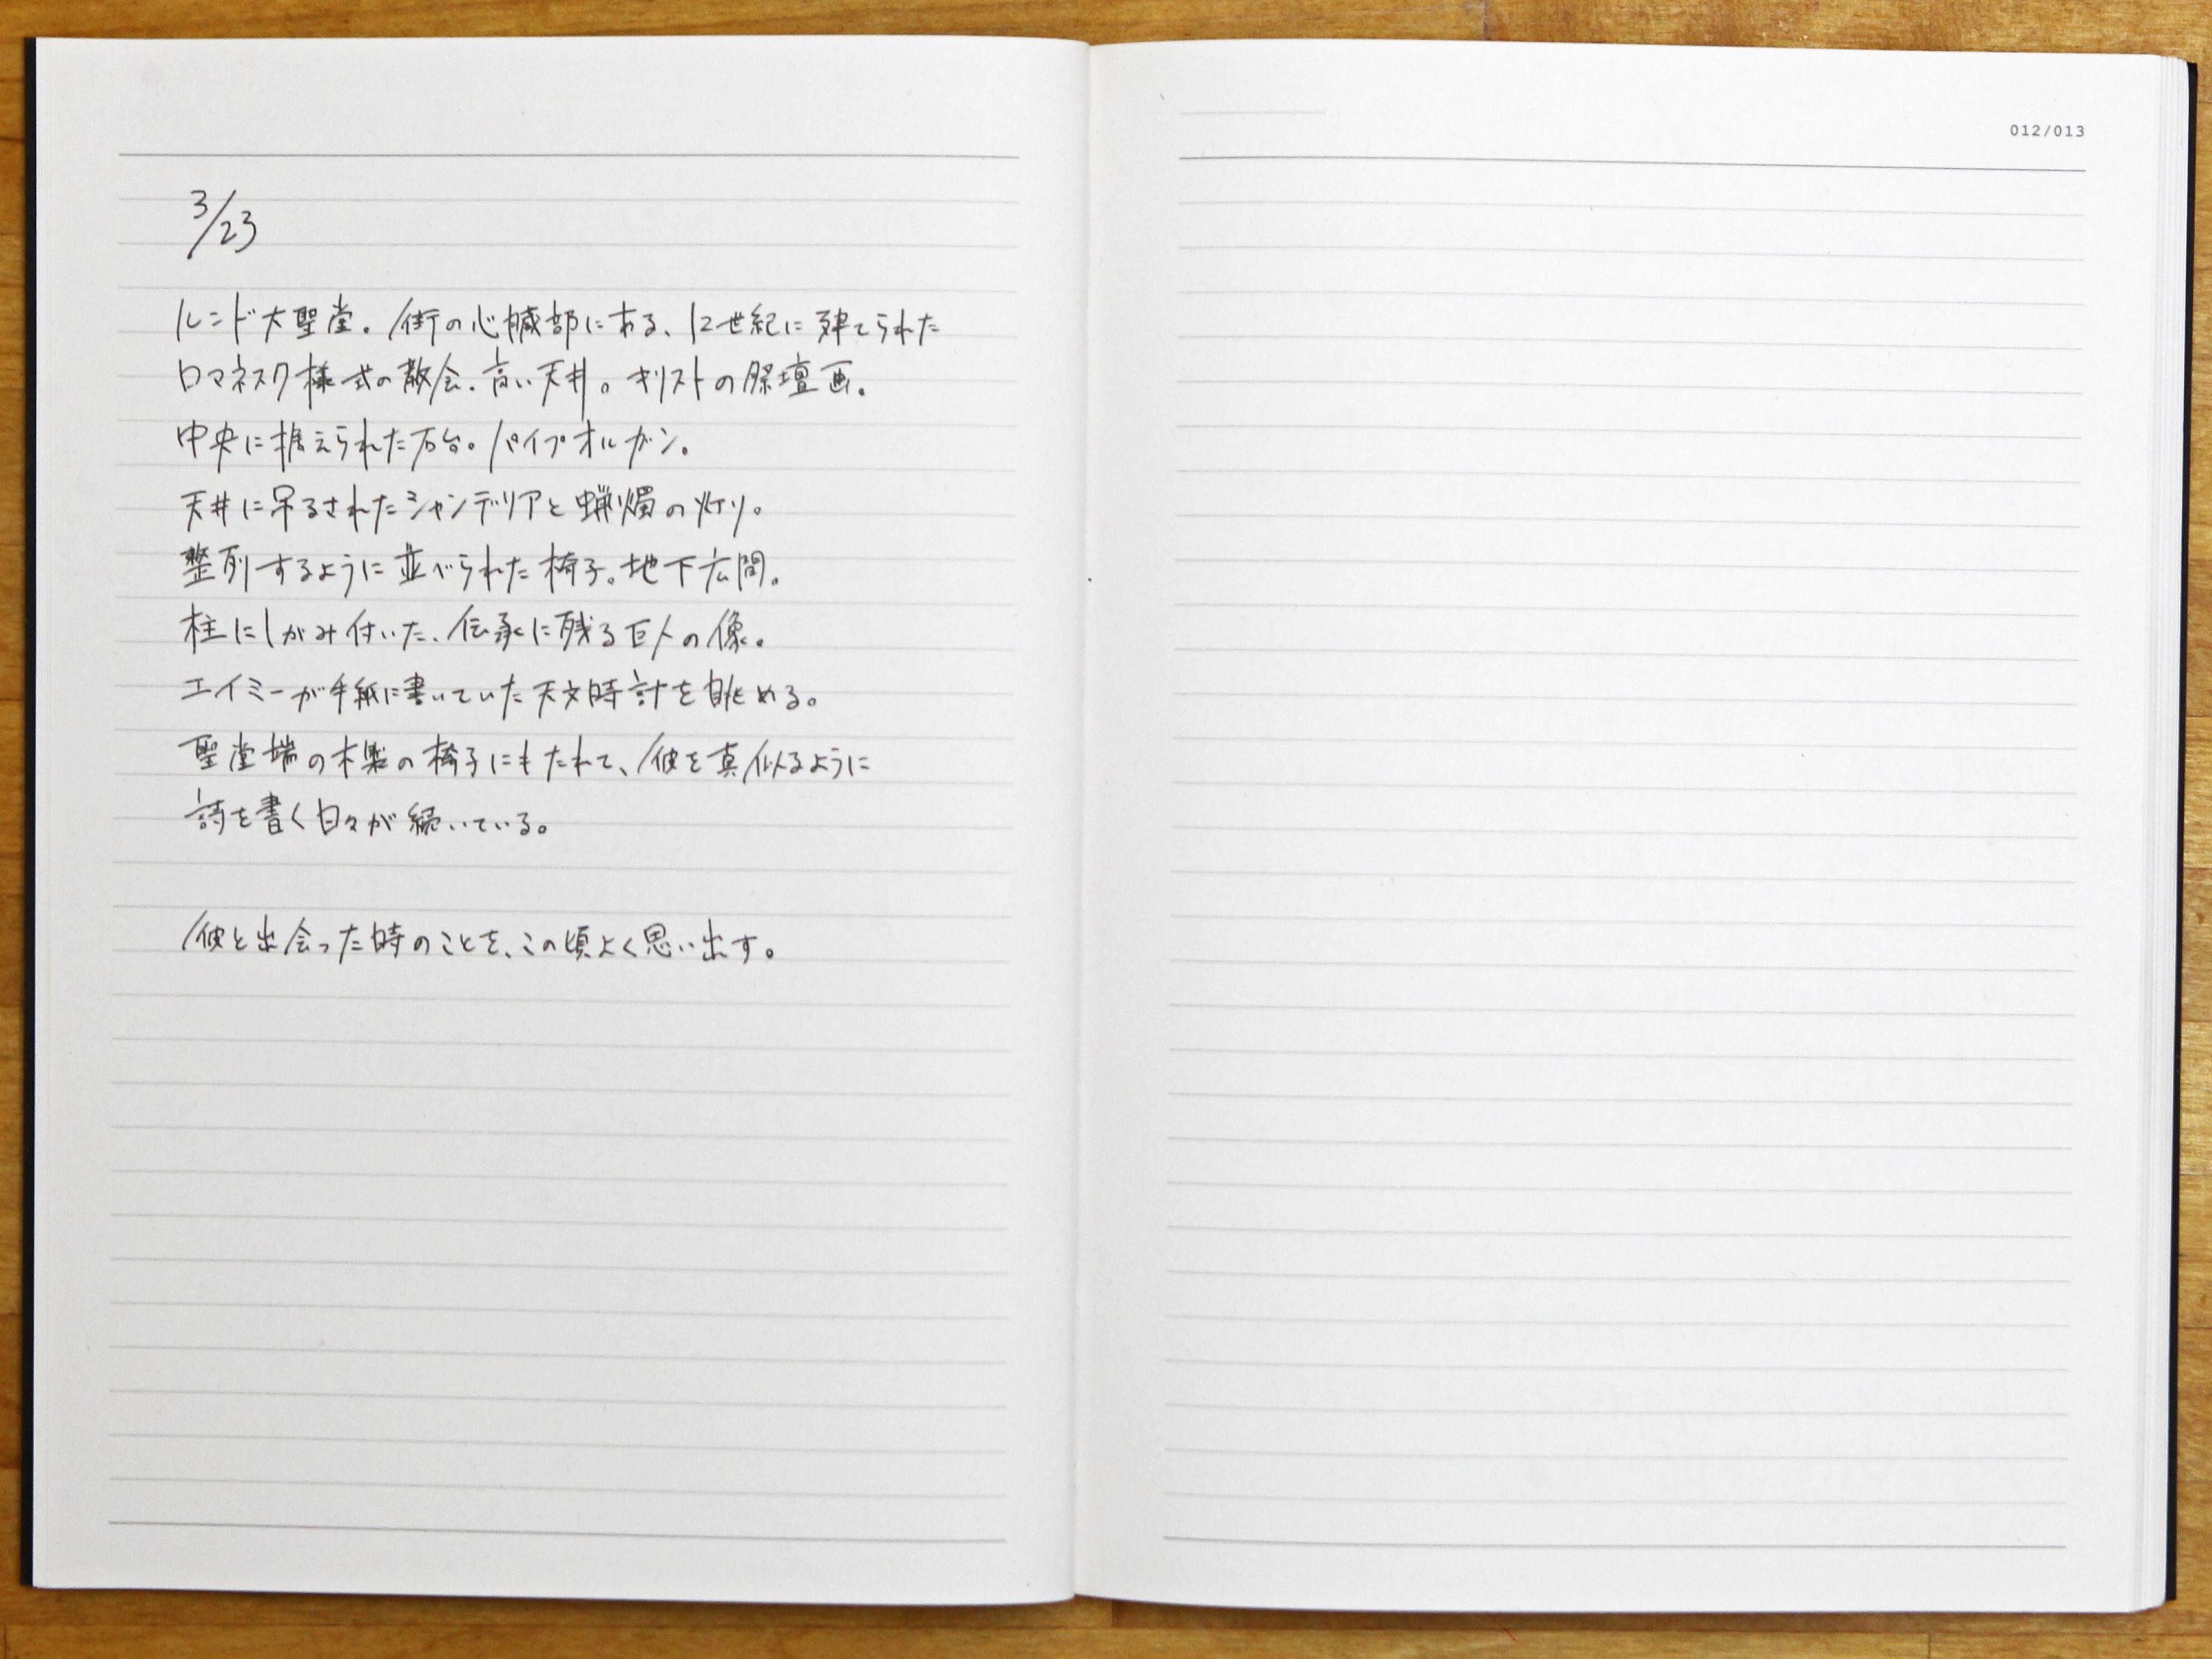 3/23
ルンド大聖堂。街の心臓部にある、12世紀に建てられた
ロマネスク様式の教会。高い天井。キリストの祭壇画。
中央に据えられた石台。パイプオルガン。
天井に吊るされたシャンデリアと蝋燭の灯り。
整列するように並べられた椅子。地下広間。
柱にしがみ付いた、伝承に残る巨人の像。
エイミーが手紙に書いていた天文時計を眺める。
聖堂端の木製の椅子にもたれて、彼を真似るように
詩を書く日々が続いている。
彼と出会った時のことを、この頃よく思い出す。
012/013